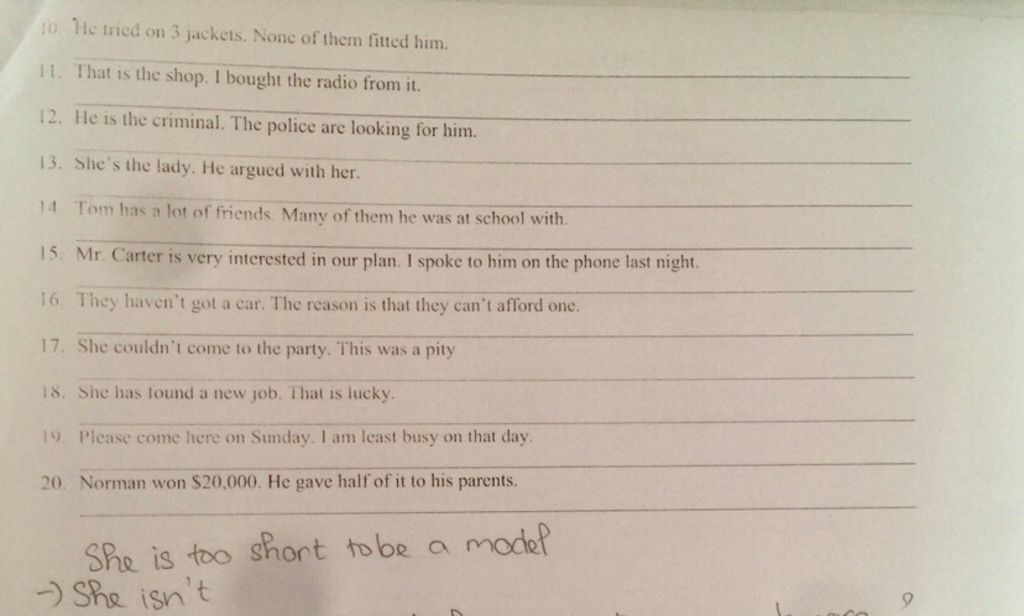 10. He tried on 3 jackets. None of them fitted him.
11. That is the shop. I bought the radio from it.
12. He is the criminal. The police are looking for him.
13. She's the lady. He argued with her.
14 Tom has a lot of friends. Many of them he was at school with.
15. Mr. Carter is very interested in our plan. I spoke to him on the phone last night.
16 They haven't got a car. The reason is that they can't afford one.
17. She couldn't come to the party. This was a pity
18. She has found a new job. That is lucky.
19. Please come here on Sunday. I am least busy on that day.
20. Norman won $20,000. He gave half of it to his parents.
She is too short to be a model
→ She isn't